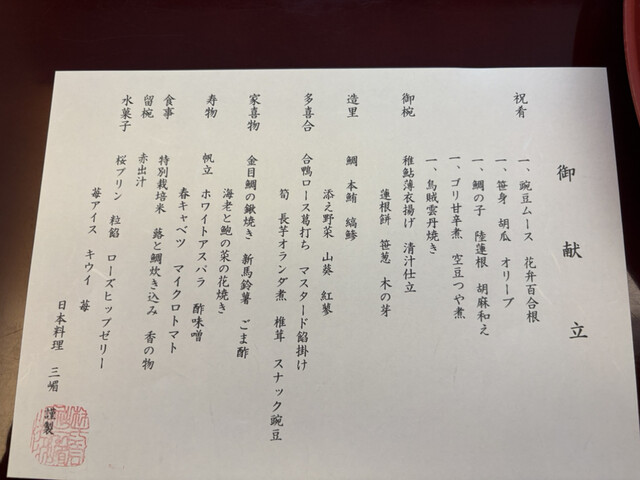 御献立
祝肴
一、豌豆ムース　花弁百合根
一、笹身　胡瓜　オリーブ
一、鯛の子　陸蓮根　胡麻和え
一、ゴリ甘辛煮　空豆つや煮
一、烏賊雲丹焼き
御椀
稚鮎薄衣揚げ　清汁仕立
蓮根餅　笹葱　木の芽
造里
鯛　本鮪　縞鯵
添え野菜　山葵　紅蓼
多喜合
合鴨ロース葛打ち　マスタード餡掛け
筍　長芋オランダ煮　椎茸　スナック豌豆
家喜物
金目鯛の鍬焼き　新馬鈴薯　ごま酢
海老と鮑の菜の花焼き
寿物
帆立　ホワイトアスパラ　酢味噌
春キャベツ　マイクロトマト
食事
特別栽培米　蕗と鯛炊き込み　香の物
留椀
赤出汁
水菓子
桜プリン　粒餡　ローズヒップゼリー
苺アイス　キウイ　苺
日本料理　三嵋　謹製